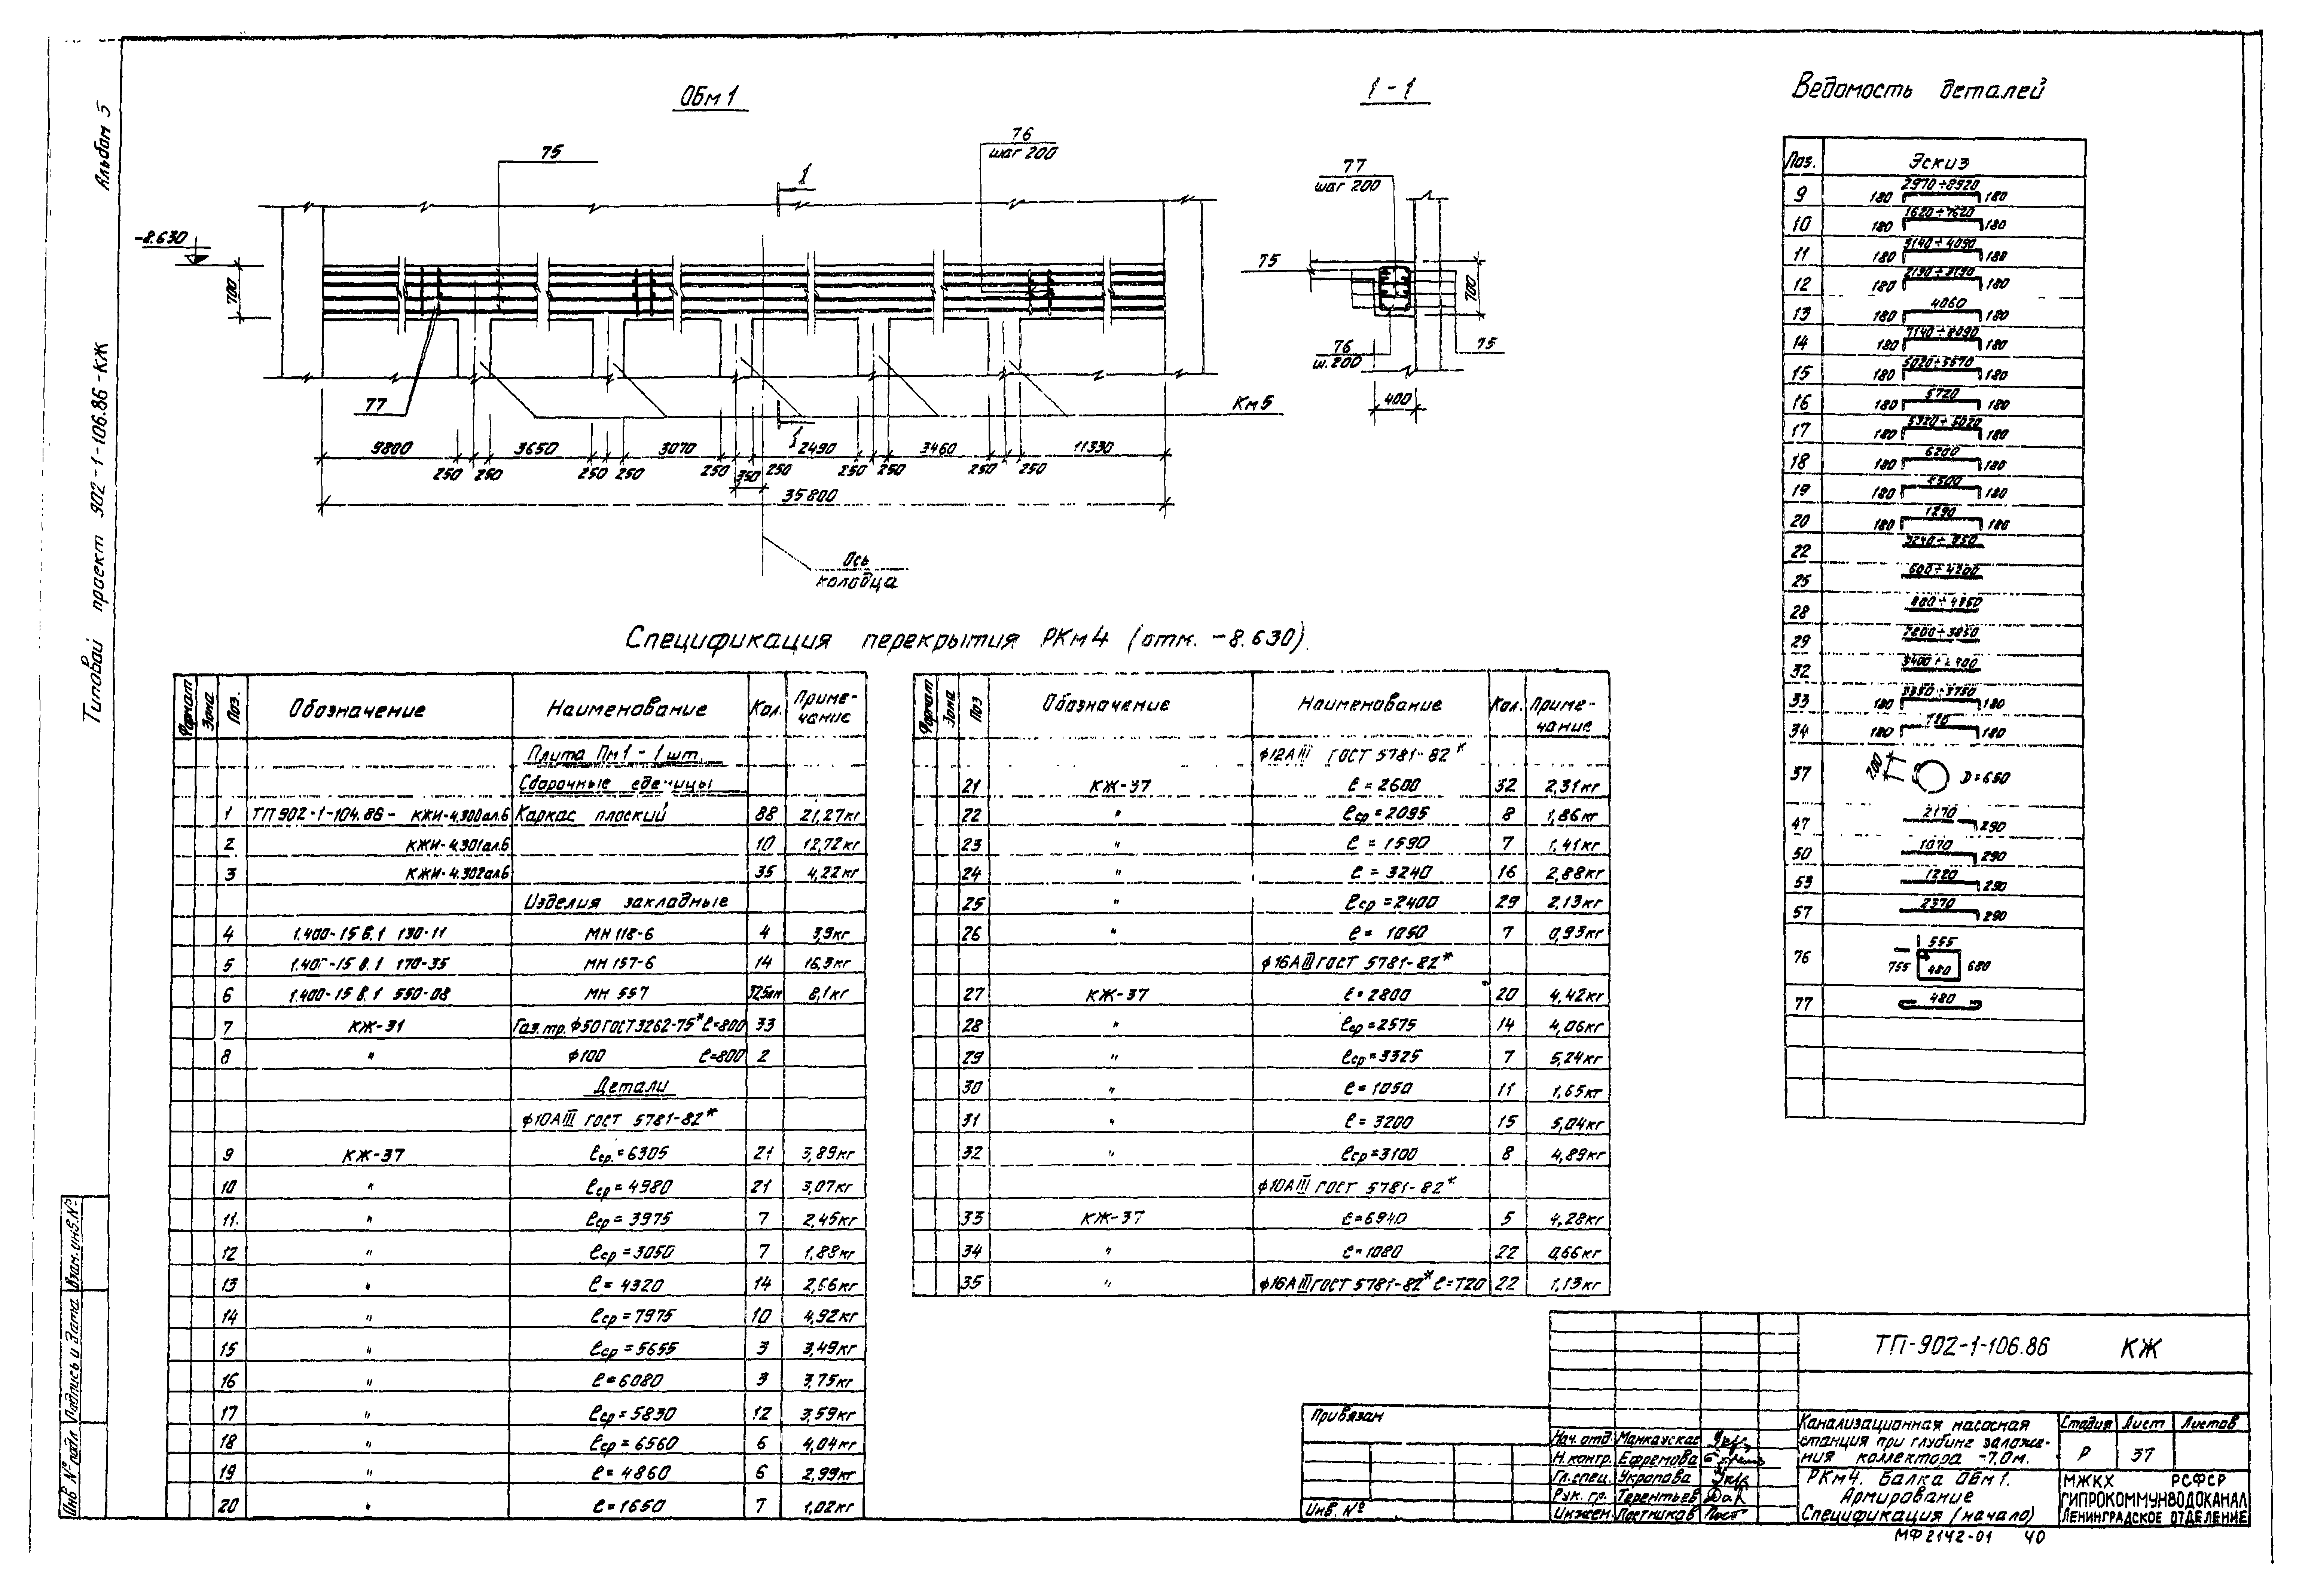 Альбом 5
Типовой проект 902-1-106.86-КЖ
ОБм 1
75
76
шаг 200
1
-8.630
700
77
Км 5
1
9800 3650 3070 2490 3460 11330
250 250 250 250 250 350 250 250 250 250 250
35800
Ось
колодца
1-1
77
шаг 200
75
700
76
ш.200
75
400
Ведомость деталей
Поз. Эскиз
9 180 2970÷8920 180
10 180 1620÷7620 180
11 180 3140÷4090 180
12 180 2190÷3190 180
13 180 4060 180
14 180 7140÷8090 180
15 180 5020÷5570 180
16 180 5720 180
17 180 5320÷5020 180
18 180 6200 180
19 180 4500 180
20 180 1290 180
22 3240÷950
25 600÷4200
28 800÷4350
29 2800÷3850
32 3400÷2800
33 180 180
34 180 180
37 200 D=650
47 2170 290
50 1070 290
53 1220 290
57 2370 290
76 555 755 480 680
77 480
Спецификация перекрытия РКм4 (отм. -8.630).
Формат Зона Поз. Обозначение Наименование Кол. Приме-чание
Плита Пм1 - 1 шт.
Сборочные единицы
1 ТП 902-1-104.86- КЖИ-4.300ал.6 Каркас плоский 88 21,27кг
2 КЖИ-4.301ал.6 10 12,72кг
3 КЖИ-4.302ал.6 35 4,22кг
Изделия закладные
4 1.400-15 в.1 130-11 МН 118-6 4 3,9кг
5 1.400-15 в.1 170-35 МН 157-6 14 16,3кг
6 1.400-15 в.1 550-08 МН 557 8,1кг
7 КЖ-31 Газ.тр. ф50 ГОСТ 3262-75* ℓ=800 33
8 " ф100 ℓ=800 2
Детали
ф10АIII ГОСТ 5781-82*
9 КЖ-37 ℓср.=6305 21 3,89кг
10 " ℓср=4980 21 3,07кг
11. " ℓср=3975 7 2,45кг
12 " ℓср=3050 7 1,88кг
13 " ℓ=4320 14 2,66кг
14 " ℓср=7975 10 4,92кг
15 " ℓср=5655 3 3,49кг
16 " ℓ=6080 3 3,75кг
17 " ℓср=5830 12 3,59кг
18 " ℓср=6560 6 4,04кг
19 " ℓ=4860 6 2,99кг
20 " ℓ=1650 7 1,02кг
Формат Зона Поз Обозначение Наименование Кол. Приме-чание
ф12АIII ГОСТ 5781-82*
21 КЖ-37 ℓ=2600 32 2,31кг
22 " ℓср=2095 8 1,86кг
23 " ℓ=1590 7 1,41кг
24 " ℓ=3240 16 2,88кг
25 " ℓср=2400 29 2,13кг
26 " ℓ=1050 7 0,93кг
ф16АIII ГОСТ 5781-82*
27 КЖ-37 ℓ=2800 20 4,42кг
28 " ℓср=2575 14 4,06кг
29 " ℓср=3325 7 5,24кг
30 " ℓ=1050 11 1,65кг
31 " ℓ=3200 15 5,04кг
32 " ℓср=3100 8 4,89кг
ф10АIII ГОСТ 5781-82*
33 КЖ-37 ℓ=6940 5 4,28кг
34 " ℓ=1080 22 0,66кг
35 " ф16АIII ГОСТ 5781-82* ℓ=720 22 1,13кг
Инв № подл Подпись и дата Взам.инв.№
ТП-902-1-106.86 КЖ
Привязан
Инв. №
Нач.отд. Манкаускас
Н.контр. Ефремова
Гл.спец. Укропова
Рук. гр. Терентьев
Инжен. Постников
Канализационная насосная
станция при глубине заложе-
ния коллектора -7,0м.
Стадия Лист Листов
Р 37
РКм4. Балка ОБм1.
Армирование
Спецификация (начало)
МЖКХ РСФСР
ГИПРОКОММУНВОДОКАНАЛ
ЛЕНИНГРАДСКОЕ ОТДЕЛЕНИЕ
МФ2142-01 40